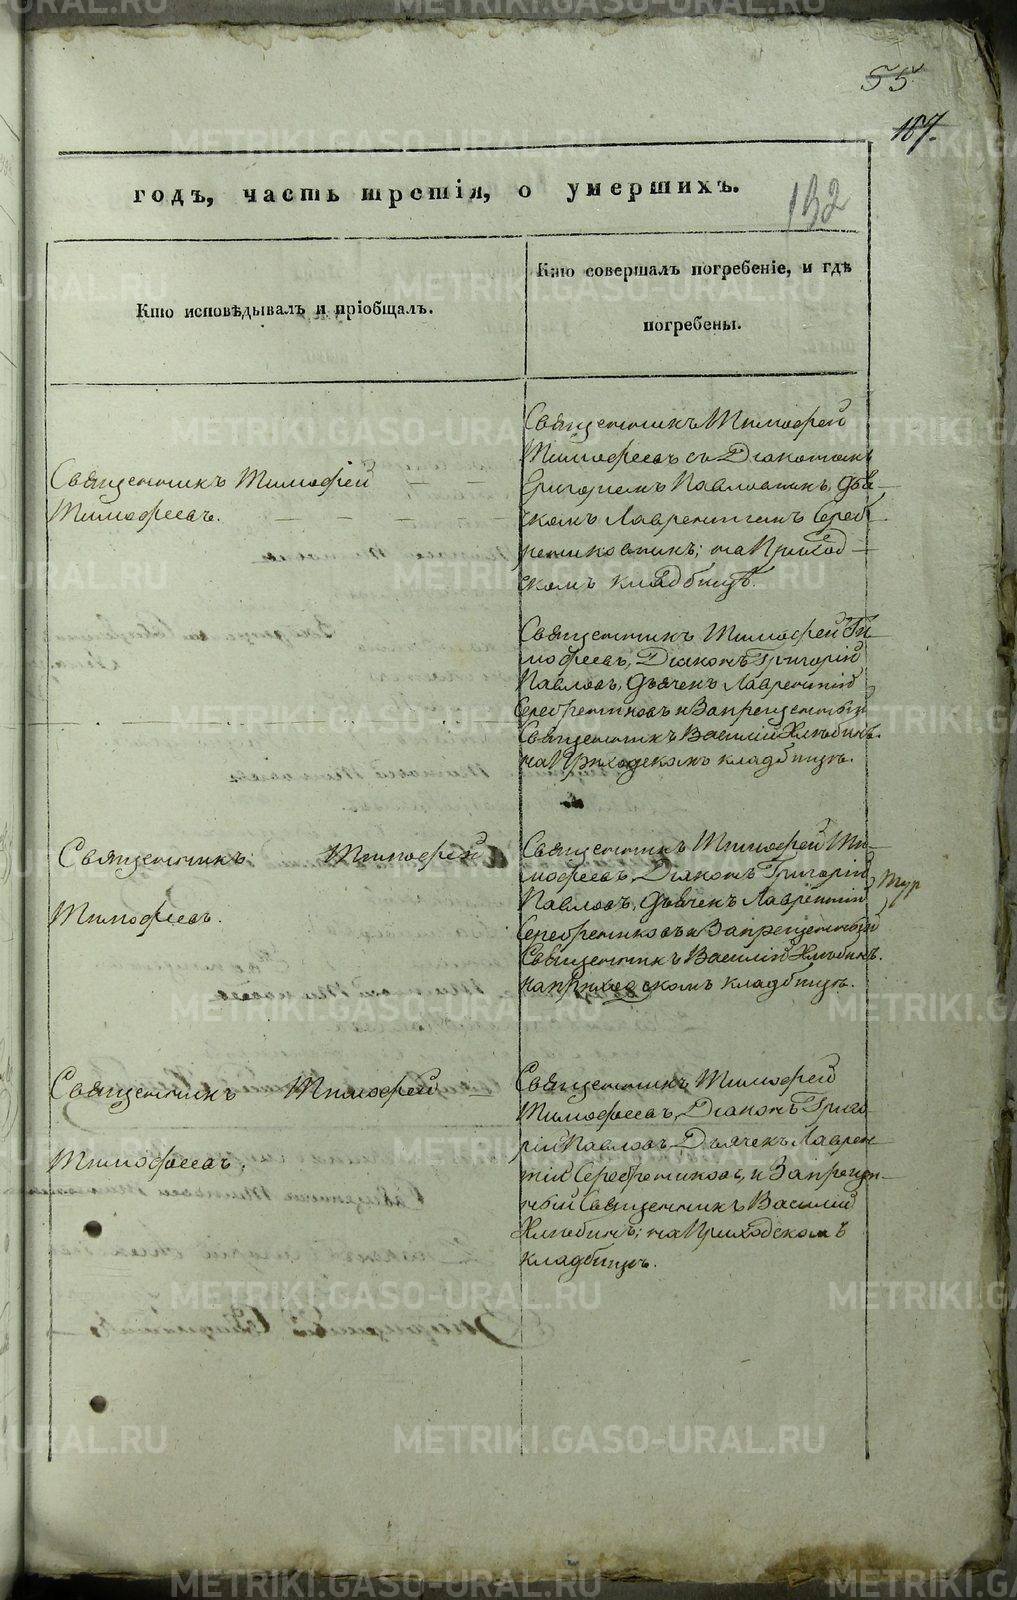 55
187.
годъ, часть третія, о умершихъ.
132
Кто исповѣдывалъ и пріобщалъ.
Кто совершалъ погребеніе, и гдѣ
погребены.
Священникъ Тимофей
Тимофеевъ съ Діакономъ
Григоріемъ Павловымъ, дья-
комъ Лаврентіемъ Сереб-
рениковымъ; на Приход-
скомъ кладбищѣ.
Священникъ Тимофей
Тимофеевъ.
Священникъ Тимофей Ти-
мофеевъ, Діаконъ Григорій
Павловъ, дьячекъ Лаврентій
Серебрениковъ и Запрещенный
Священникъ Василій Хлыбинъ.
на Приходскомъ кладбищѣ.
Священникъ Тимофей
Тимофеевъ.
Священникъ Тимофей Ти-
мофеевъ, Діаконъ Григорій
Павловъ, дьячекъ Лаврентій
Серебрениковъ и Запрещенный
Священникъ Василій Хлыбинъ.
на Приходскомъ кладбищѣ.
Священникъ Тимофей
Тимофеевъ.
Священникъ Тимофей
Тимофеевъ, Діаконъ Григо-
рій Павловъ, Дьячекъ Лаврен-
тій Серебрениковъ, и Запрещен-
ный Священникъ Василій
Хлыбинъ; на Приходскомъ
кладбищѣ.
METRIKI.GASO-URAL.RU